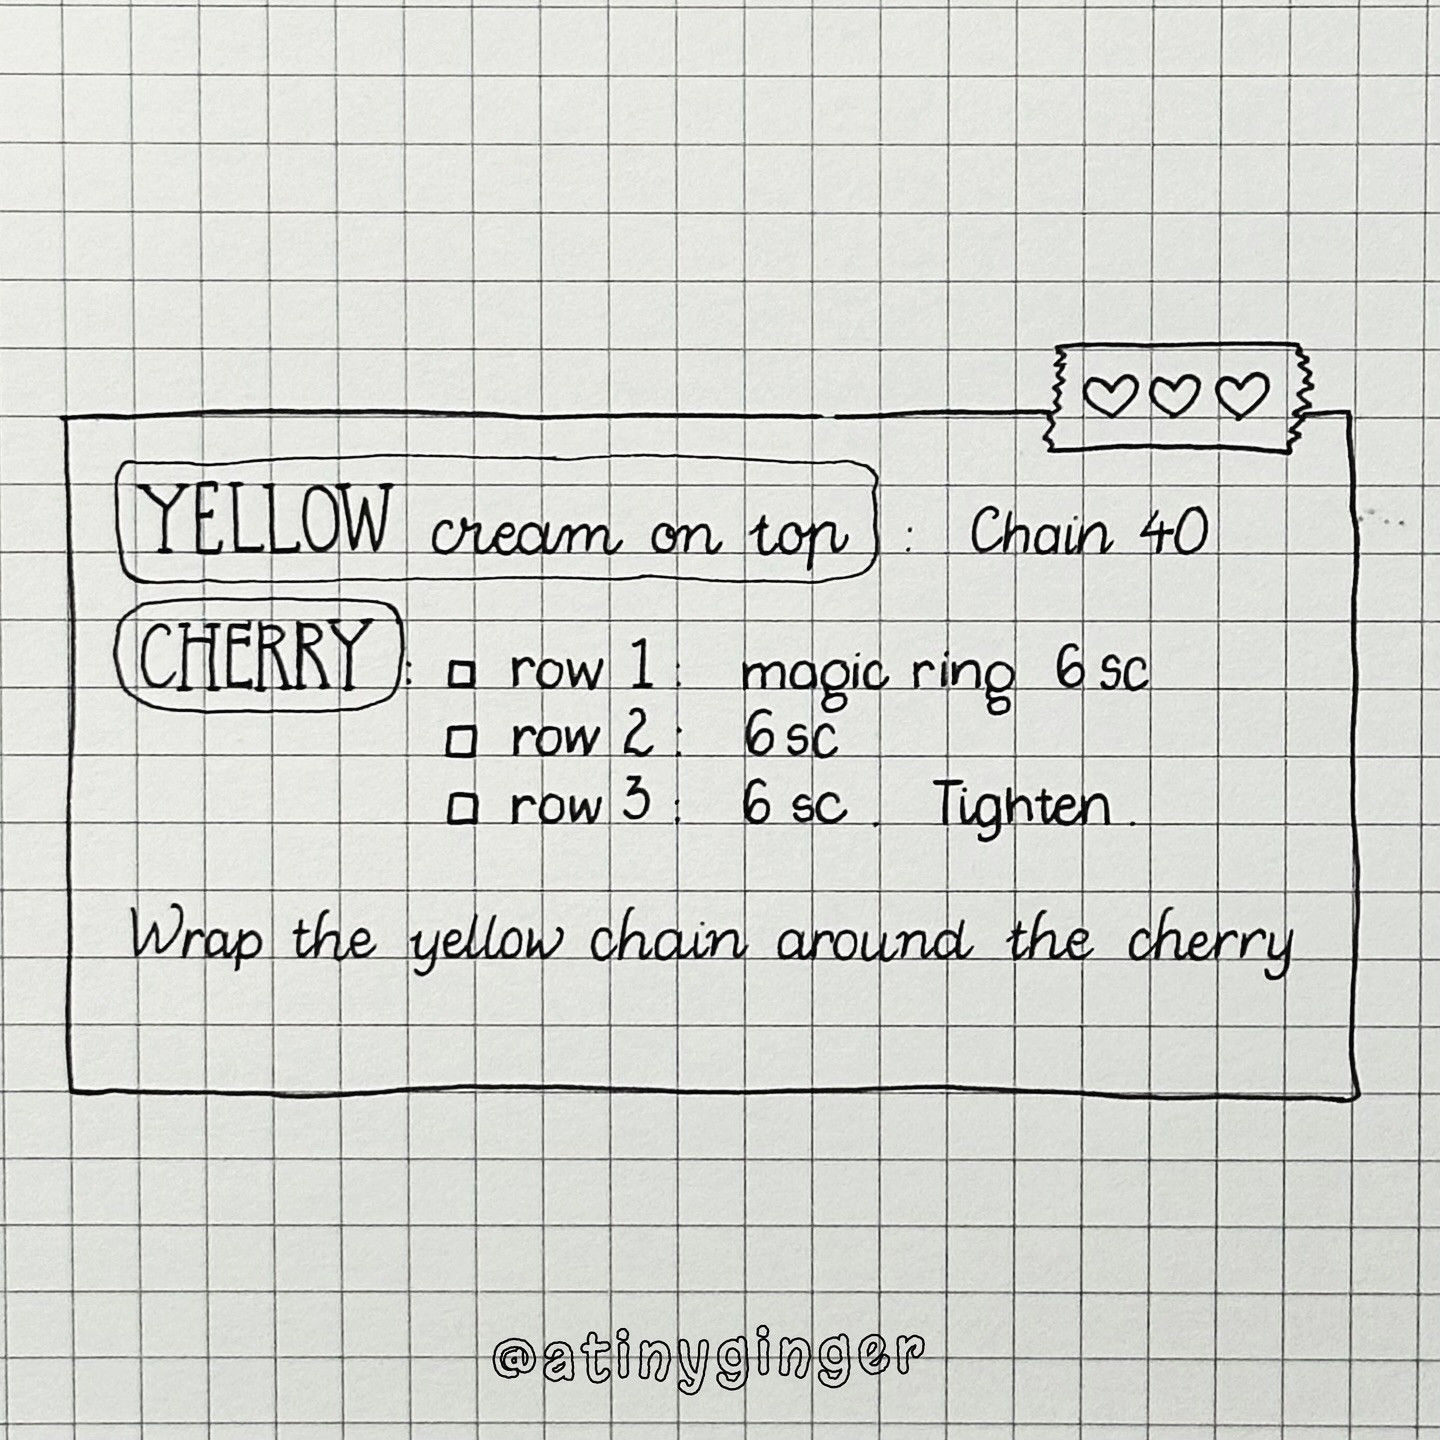 YELLOW cream on top : Chain 40
CHERRY : □ row 1 : magic ring 6 sc
□ row 2 : 6 sc
□ row 3 : 6 sc . Tighten .
Wrap the yellow chain around the cherry
@atinyginger